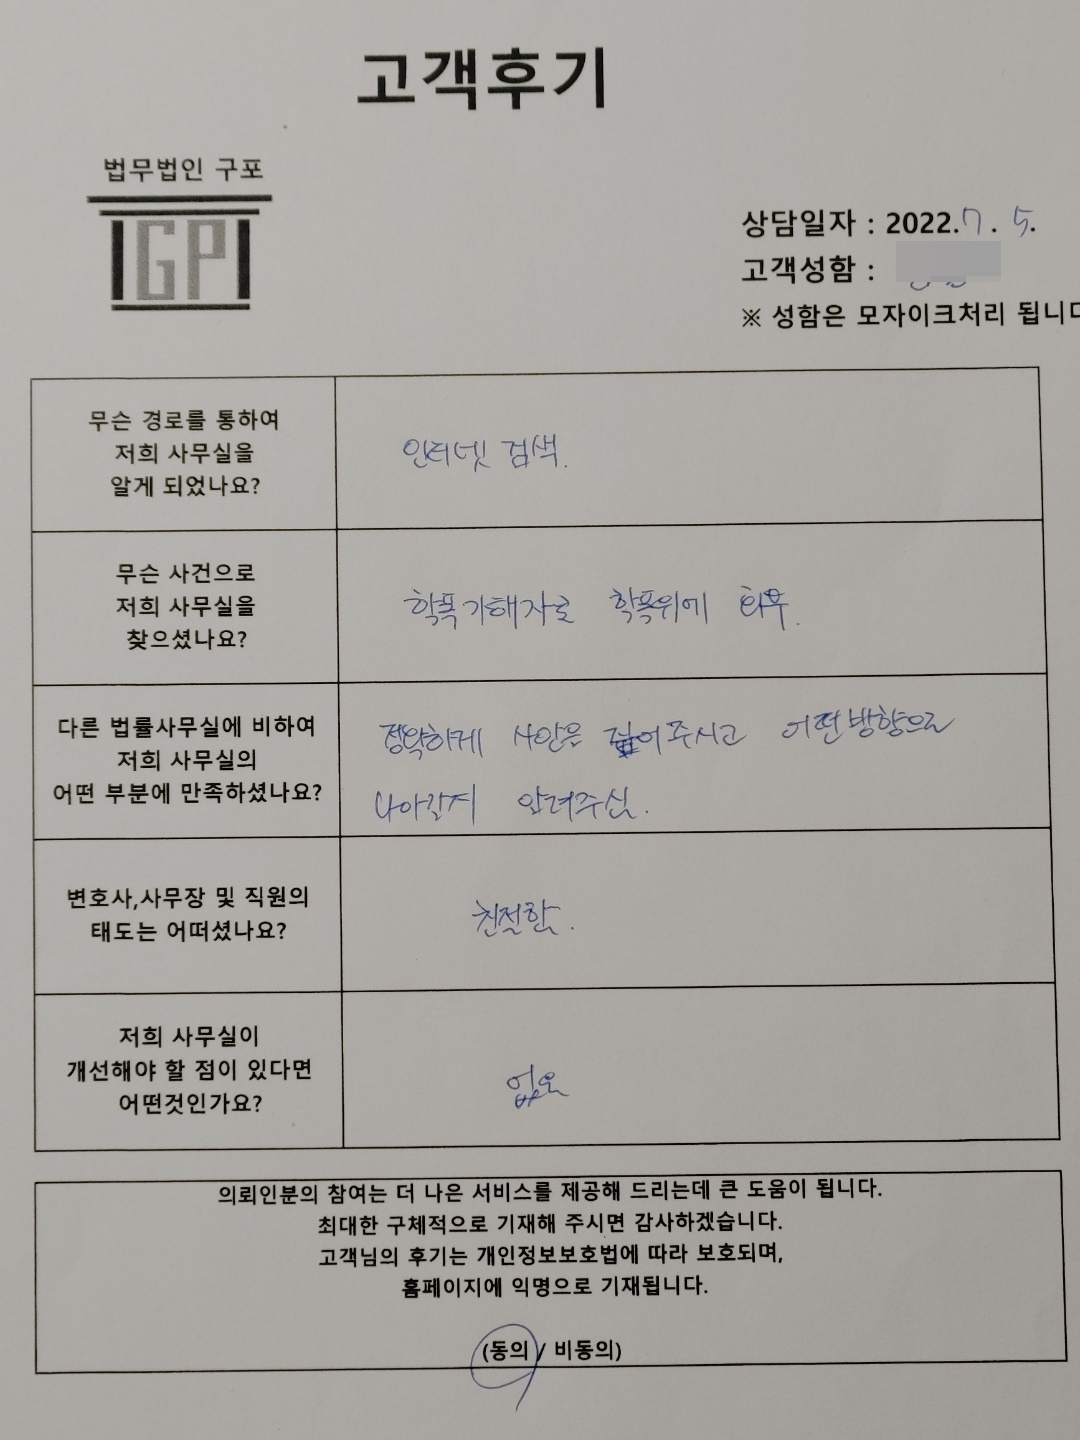 고객후기
법무법인 구포
GP
상담일자 : 2022.7. 5.
고객성함 :
※ 성함은 모자이크처리 됩니다
무슨 경로를 통하여
저희 사무실을
알게 되었나요?
인터넷 검색.
무슨 사건으로
저희 사무실을
찾으셨나요?
학폭가해자로 학폭위에 회부.
다른 법률사무실에 비하여
저희 사무실의
어떤 부분에 만족하셨나요?
정확하게 사안을 짚어주시고 어떤방향으로
나아갈지 알려주심.
변호사,사무장 및 직원의
태도는 어떠셨나요?
친절함.
저희 사무실이
개선해야 할 점이 있다면
어떤것인가요?
없음
의뢰인분의 참여는 더 나은 서비스를 제공해 드리는데 큰 도움이 됩니다.
최대한 구체적으로 기재해 주시면 감사하겠습니다.
고객님의 후기는 개인정보보호법에 따라 보호되며,
홈페이지에 익명으로 기재됩니다.
(동의 / 비동의)